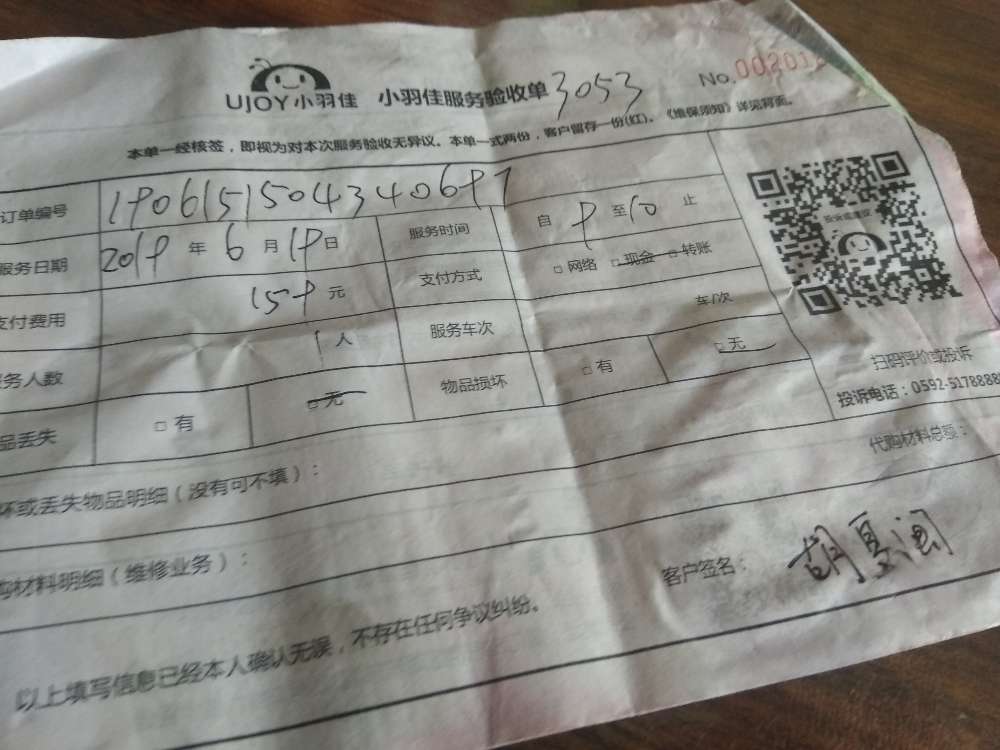 UJOY小羽佳 小羽佳服务验收单 3053 No.00201
本单一经核签，即视为对本次服务验收无异议。本单一式两份，客户留存一份(红)。《维保须知》详见背面。
订单编号 1906151504340697
服务日期 2019 年 6 月 19 日 服务时间 自 9 至 10 止
支付费用 159 元 支付方式 □ 网络 □ 现金 □ 转账
服务人数 1 人 服务车次 车/次
品丢失 □ 有 □ 无 物品损坏 □ 有 □ 无
投诉或建议
扫码评价或投诉
投诉电话：0592-5178888
坏或丢失物品明细（没有可不填）：
代购材料总额：
购材料明细（维修业务）：
客户签名： 胡夏润
以上填写信息已经本人确认无误，不存在任何争议纠纷。